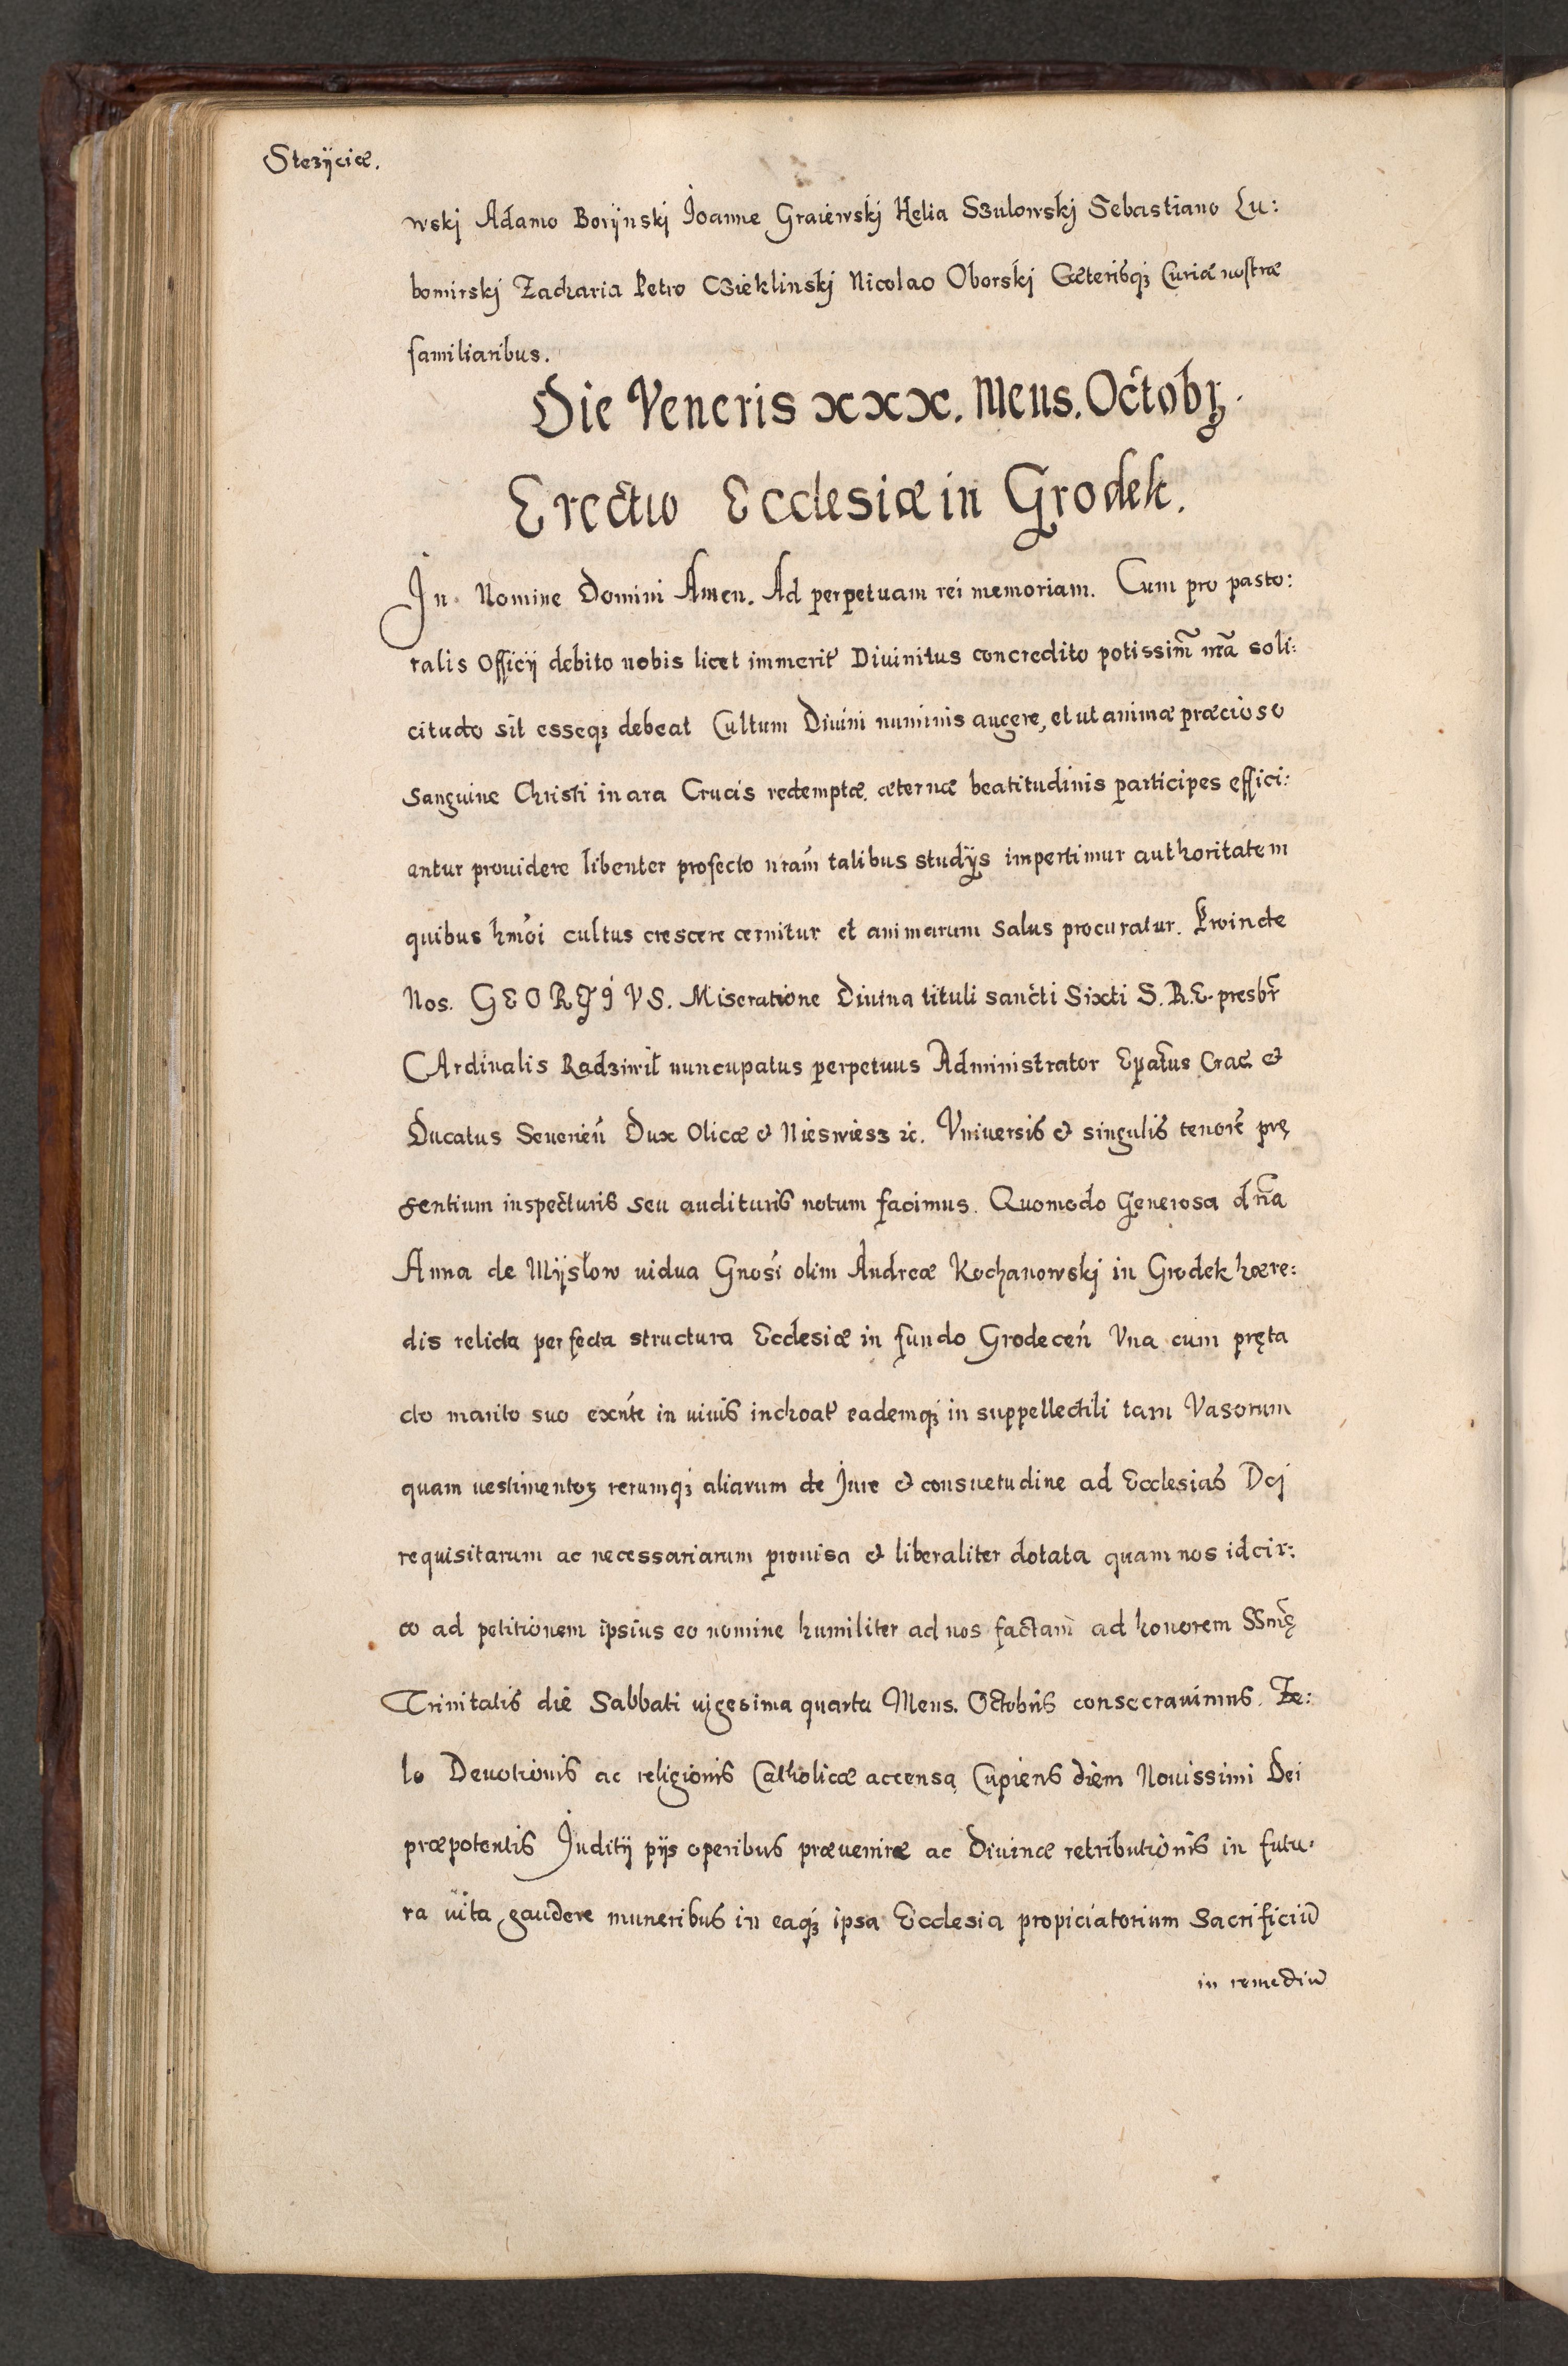 Stezÿciæ.
wskj Adamo Borÿnskj Joanne Graiewskj Helia Szulowskj Sebastiano Lu:
bomirskj Zacharia Petro Czieklinskj Nicolao Oborskj Cæterisq; Curiæ nostræ
familiaribus.
Die Veneris xxx. Mens. Octobr.
Erectio Ecclesiæ in Grodek.
In Nomine Domini Amen. Ad perpetuam rei memoriam. Cum pro pasto:
ralis Officij debito nobis licet immerit' Diuinitus concredito potissim̃ nr̃a soli:
citudo sit esseq; debeat Cultum Diuini numinis augere, et ut animæ præcioso
sanguine Christi in ara Crucis redemptæ, æternæ beatitudinis participes effici:
antur prouidere libenter profecto nrãm talibus studÿs impertimur authoritatem
quibus hmõi cultus crescere cernitur et animarum salus procuratur. Proinde
Nos. GEORGIVS. Miseratione Diuina tituli sancti Sixti S. R. E. presbr̃
CArdinalis Radziwil nuncupatus perpetuus Administrator Ep̃atus Crac̃ &
Ducatus Seuerień Dux Olicæ & Nieswiesz ꝛc. Vniuersis & singulis tenorẽ pre̢
sentium inspecturis seu audituris notum facimus. Quomodo Generosa dña
Anna de Mÿslow uidua Gnosi olim Andreæ Kochanowskj in Grodek hære:
dis relicta perfecta structura Ecclesiæ in fundo Grodeceń Vna cum pre̢ta
cto marito suo exñte in uiuis inchoat' eademq; in suppellectili tam Vasorum
quam uestimentoꝝ rerumq; aliarum de Jure & consuetudine ad Ecclesias Dej
requisitarum ac necessariarum prouisa & liberaliter dotata quam nos idcir:
co ad petitionem ipsius eo nomine humiliter ad nos factam ad honorem SSmẽ̢
Trinitatis die Sabbati uigesima quarta Mens. Octobris consecrauimus. Ze:
lo Deuotionis ac religionis Catholicæ accensa Cupiens diem Nouissimi Dei
præpotentis Juditij pijs operibus præuenire ac Diuinæ retributionis in futu:
ra uita gaudere muneribus in eaq; ipsa Ecclesia propiciatorium Sacrificiũ
in remediũ